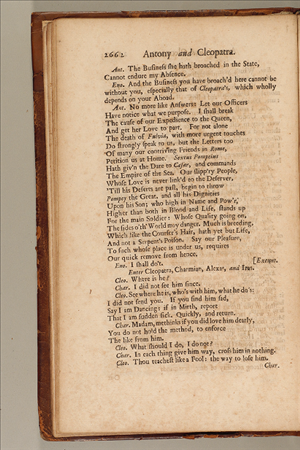 2662 Antony and Cleopatra.
Ant. The Business she hath broached in the State,
Cannot endure my Absence.
Eno. And the Business you have broach'd here cannot be
without you, especially that of Cleopatra's, which wholly
depends on your Aboad.
Ant. No more like Answers: Let our Officers
Have notice what we purpose. I shall break
The cause of our Expedience to the Queen,
And get her Love to part. For not alone
The death of Fulvia, with more urgent touches
Do strongly speak to us, but the Letters too
Of many our contriving Friends in Rome,
Petition us at Home. Sextus Pompeius
Hath giv'n the Dare to Cæsar, and commands
The Empire of the Sea. Our slipp'ry People,
Whose Love is never link'd to the Deserver,
'Till his Deserts are past, begin to throw
Pompey the Great, and all his Dignities
Upon his Son; who high in Name and Pow'r,
Higher than both in Blood and Life, stands up
For the main Soldier: Whose Quality going on,
The sides o'th' World may danger. Much is breeding,
Which like the Courser's Hair, hath yet but Life,
And not a Serpent's Poison. Say our Pleasure,
To such whose place is under us, requires
Our quick remove from hence.
Eno. I shall do't. [Exeunt.
Enter Cleopatra, Charmian, Alexas, and Iras.
Cleo. Where is he?
Char. I did not see him since.
Cleo. See where he is, who's with him, what he do's:
I did not send you. If you find him sad,
Say I am Dancing: if in Mirth, report
That I am sudden sick. Quickly, and return.
Char. Madam, methinks if you did love him dearly,
You do not hold the method, to enforce
The like from him.
Cleo. What should I do, I do not?
Char. In each thing give him way, cross him in nothing.
Cleo. Thou teachest like a Fool: the way to lose him.
Char.